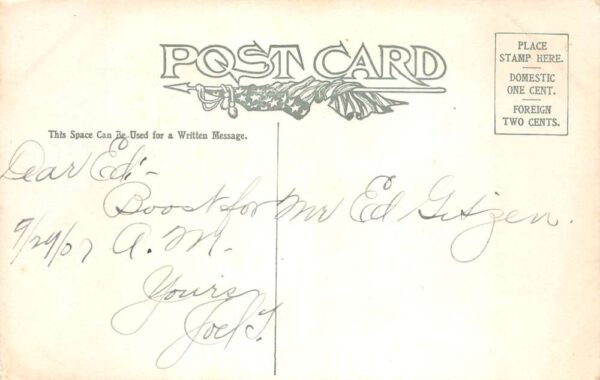 POST CARD
PLACE
STAMP HERE.
DOMESTIC
ONE CENT.
FOREIGN
TWO CENTS.
This Space Can Be Used for a Written Message.
Dear Ed:-
Boost for
9/29/07 A. M.
Yours
Joel T.
Mr Ed Gitzen.